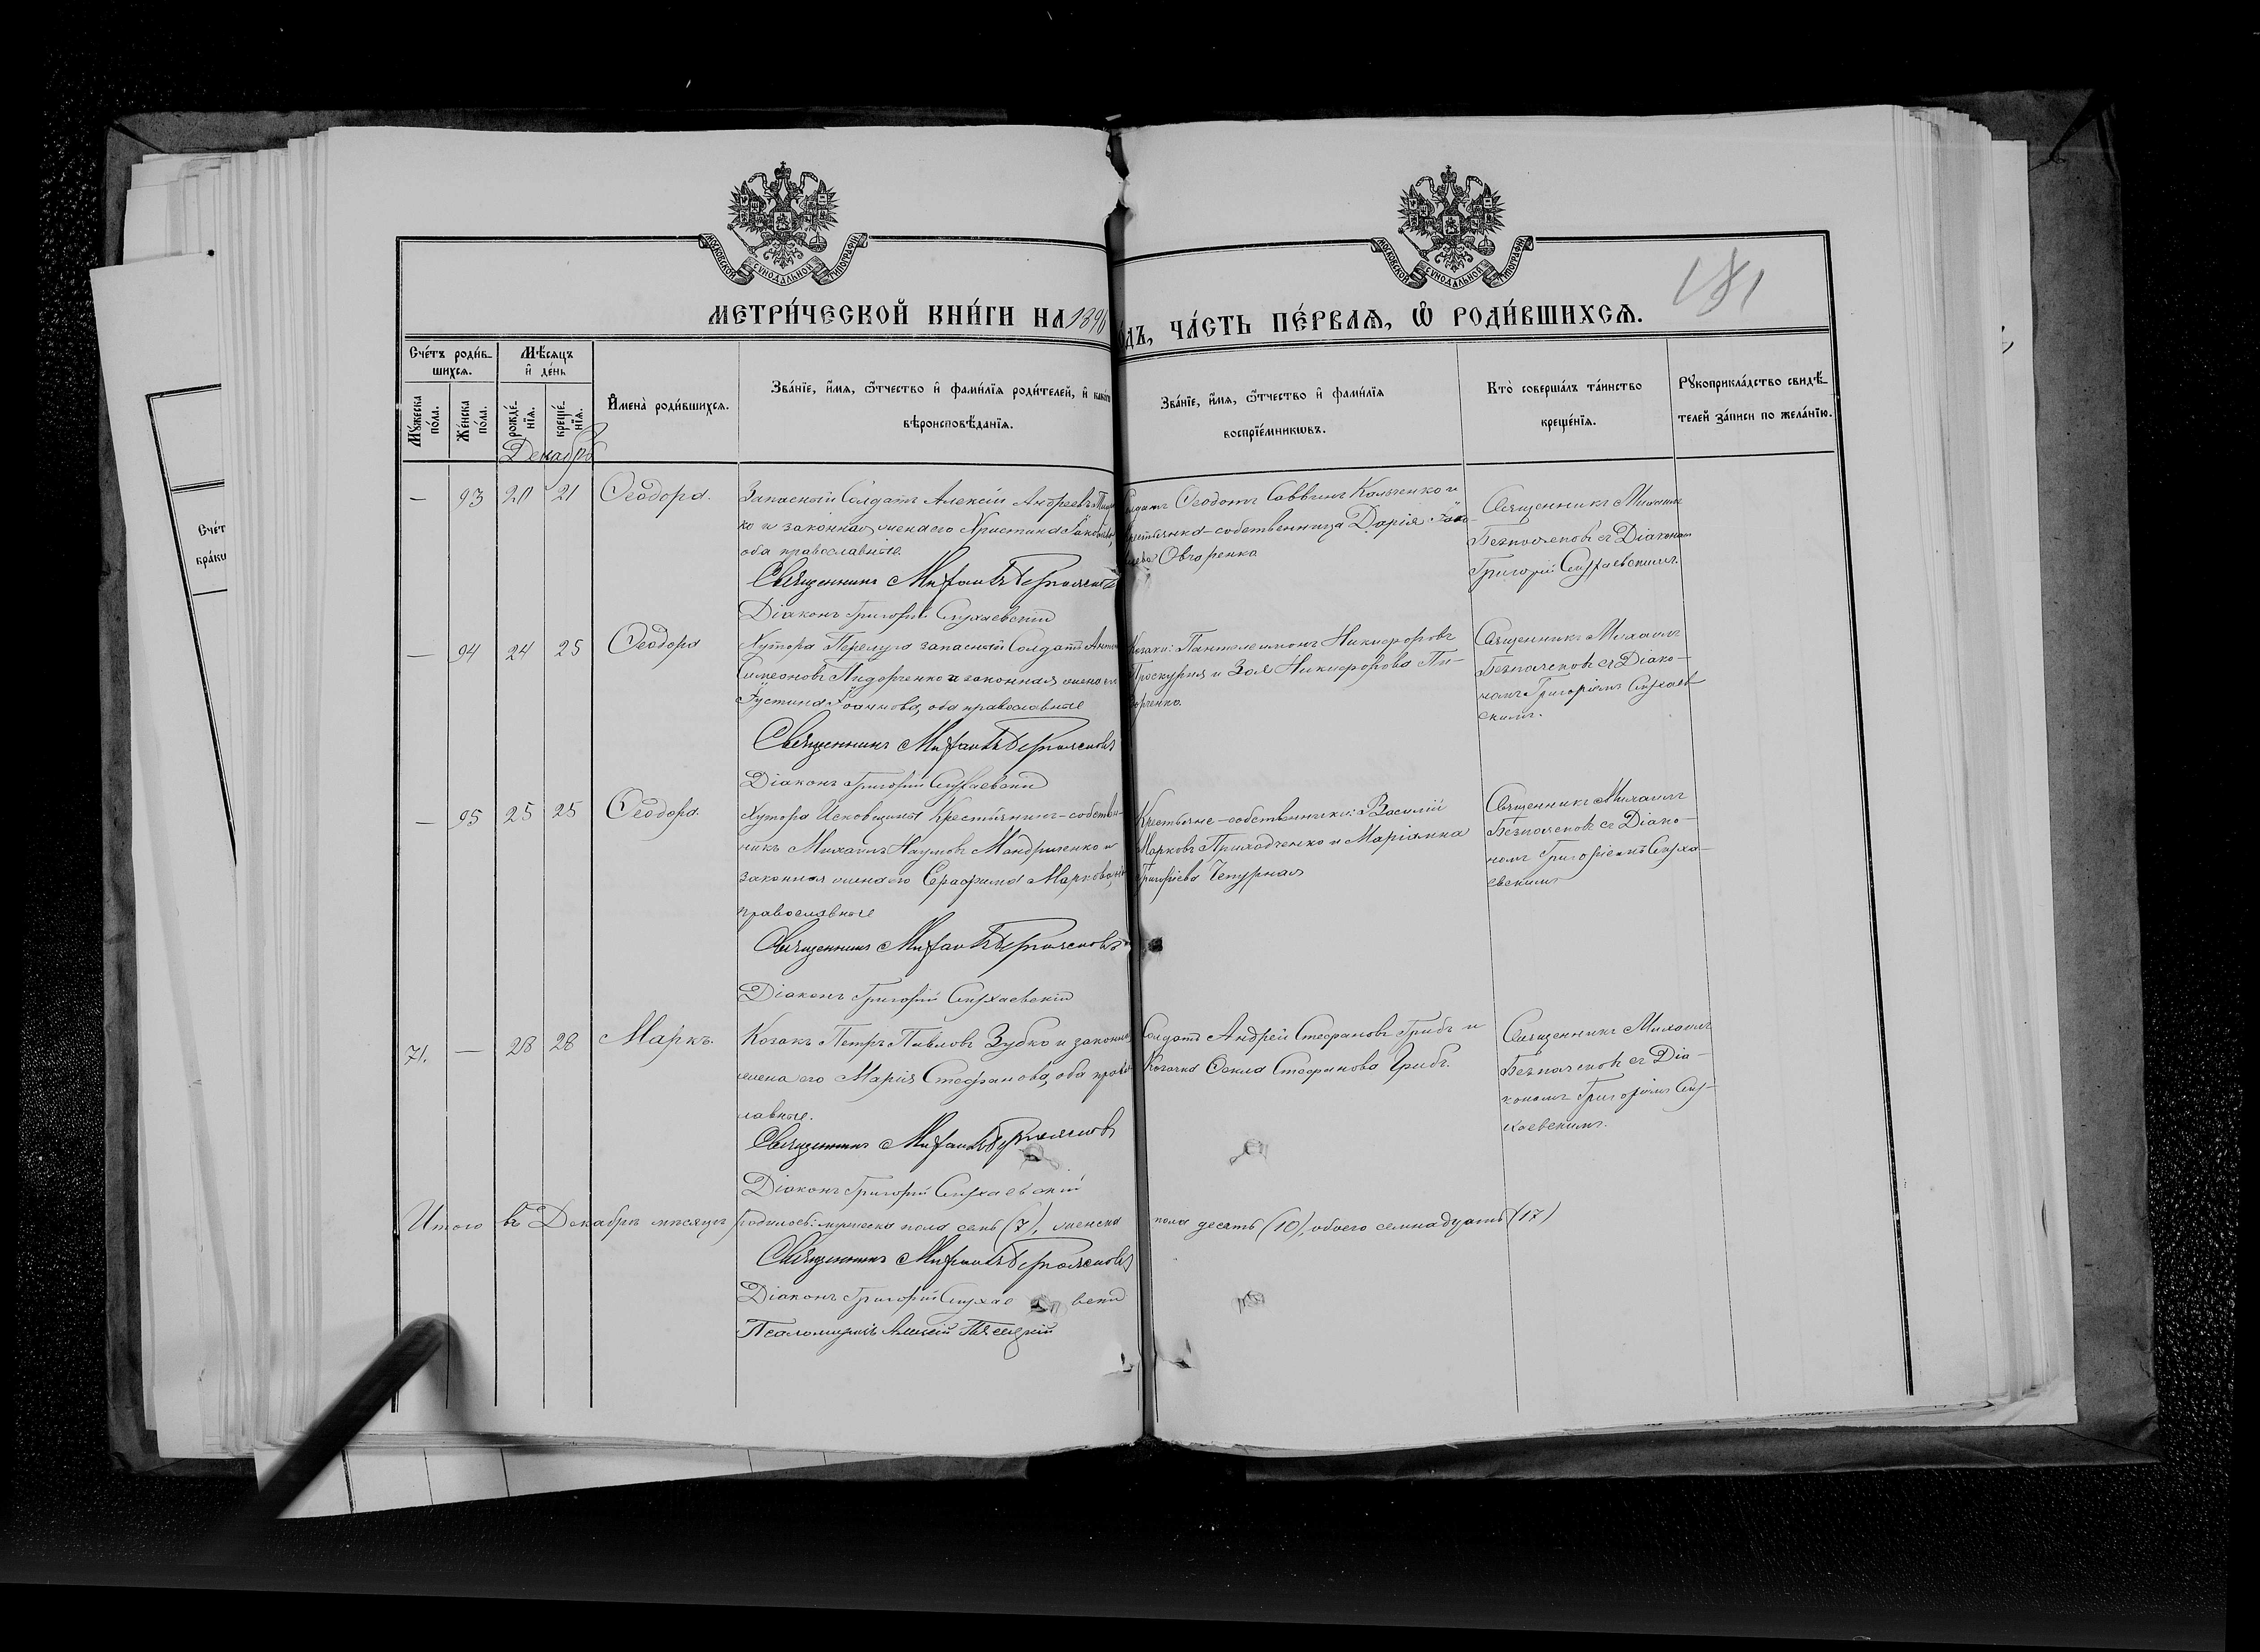 МОСКОВСКОЙ СУНОДАЛЬНОЙ ТИПОГРАФІИ
МОСКОВСКОЙ СУНОДАЛЬНОЙ ТИПОГРАФІИ
181
МЕТРИ́ЧЕСКОЙ КНИ́ГИ НА 1896
ОДЪ, ЧА́СТЬ ПЕ́РВАѦ, Ѡ҆ РОДИ́ВШИХСѦ.
Сче́тъ роди́в-
шихсѧ.
Мꙋ́жеска
по́ла.
Же́нска
по́ла.
Мѣ́сѧцъ
и҆ де́нь
рожде́-
нїѧ.
креще́-
нїѧ.
Декабрь
И҆мена̀ роди́вшихсѧ.
Зва́нїе, и҆́мѧ, ѻ҆́тчество и҆ фами́лїѧ роди́телей, и҆ како́гѡ
вѣроисповѣ́данїѧ.
Зва́нїе, и҆́мѧ, ѻ҆́тчество и҆ фами́лїѧ
воспрїе́мникѡвъ.
Кто̀ соверша́лъ та́инство
креще́нїѧ.
Рꙋкоприкла́дство свидѣ́-
телей за́писи по жела́нїю.
Сче́т
бра́ки
— 93 20 21 Ѳеодора.
Запасный Солдатъ Алексій Андреевъ
ко и законная жена его Христина Іаковлева,
оба православные.
Священникъ Михаилъ Безпоясковъ
Діаконъ Григорій Слухаевскій
Ѳеодотъ Саввинъ и
собственница Дарія Іако-
Овчаренко
Священникъ Михаилъ
Безпоясковъ съ Діакономъ
Григоріемъ Слухаевскимъ.
— 94 24 25 Ѳеодора
Хутора Перелуга запасный Солдатъ
Симеоновъ Пидорченко и законная жена его
Іустина Іоаннова, оба православные
Священникъ Михаилъ Безпоясковъ
Діаконъ Григорій Слухаевскій
Козаки: Пантелеимонъ Никифоровъ
Проскурня и Зоя Никифорова Пи-
дорченко.
Священникъ Михаилъ
Безпоясковъ съ Діако-
номъ Григоріемъ Слухаев
скимъ.
— 95 25 25 Ѳеодора.
Хутора Исковщины Крестьянинъ-собствен-
никъ Михаилъ Наумовъ Мандриченко и
законная жена его Серафима Маркова,
православные
Священникъ Михаилъ Безпоясковъ
Діаконъ Григорій Слухаевскій
Крестьяне-собственники: Василій
Марковъ Приходченко и Маріанна
Григоріева Чепурная
Священникъ Михаилъ
Безпоясковъ съ Діако-
номъ Григоріемъ Слуха-
евскимъ
71. — 28 28 Маркъ.
Козакъ Петръ Павловъ Зубко и законная
жена его Марія Стефанова, оба право-
славные.
Священникъ Михаилъ Безпоясковъ
Діаконъ Григорій Слухаевскій
Солдатъ Андрей Стефановъ Грибъ и
Козачка Ѳекла Стефанова Грибъ.
Священникъ Михаилъ
Безпоясковъ съ Діа-
кономъ Григоріемъ Слу-
хаевскимъ.
Итого въ Декабрѣ мѣсяцѣ родилось: мужеска пола семь (7), женска пола десять (10), обоего семнадцать (17)
Священникъ Михаилъ Безпоясковъ
Діаконъ Григорій Слухае вскій
Псаломщикъ Алексій